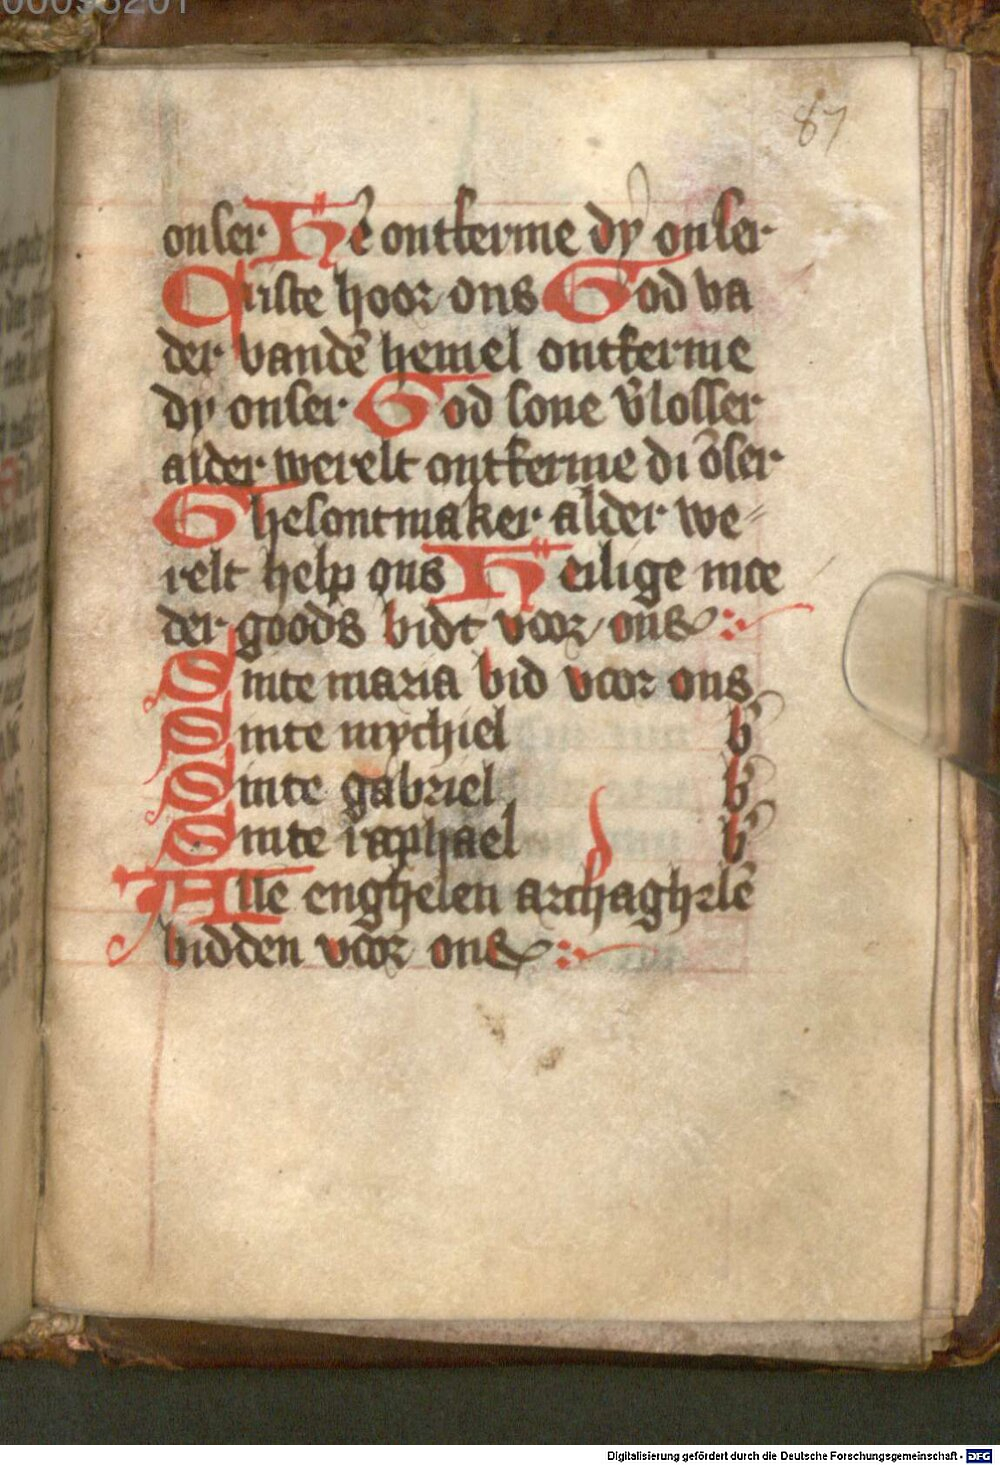 87
onser Hē ontferme dy onser
Criste hoor ons God va
der vandē hemel ontferme
dy onser God sone v̄losser
alder werelt ontferme di ōser
Ghesontmaker alder we=
relt help ons Heilige moe
der goods bidt voor ons
Sinte maria bid voor ons
Sinte mychiel b
Sinte gabriel b
Sinte raphael b
Alle enghelen archaghelē
bidden voor ons
Digitalisierung gefördert durch die Deutsche Forschungsgemeinschaft - DFG